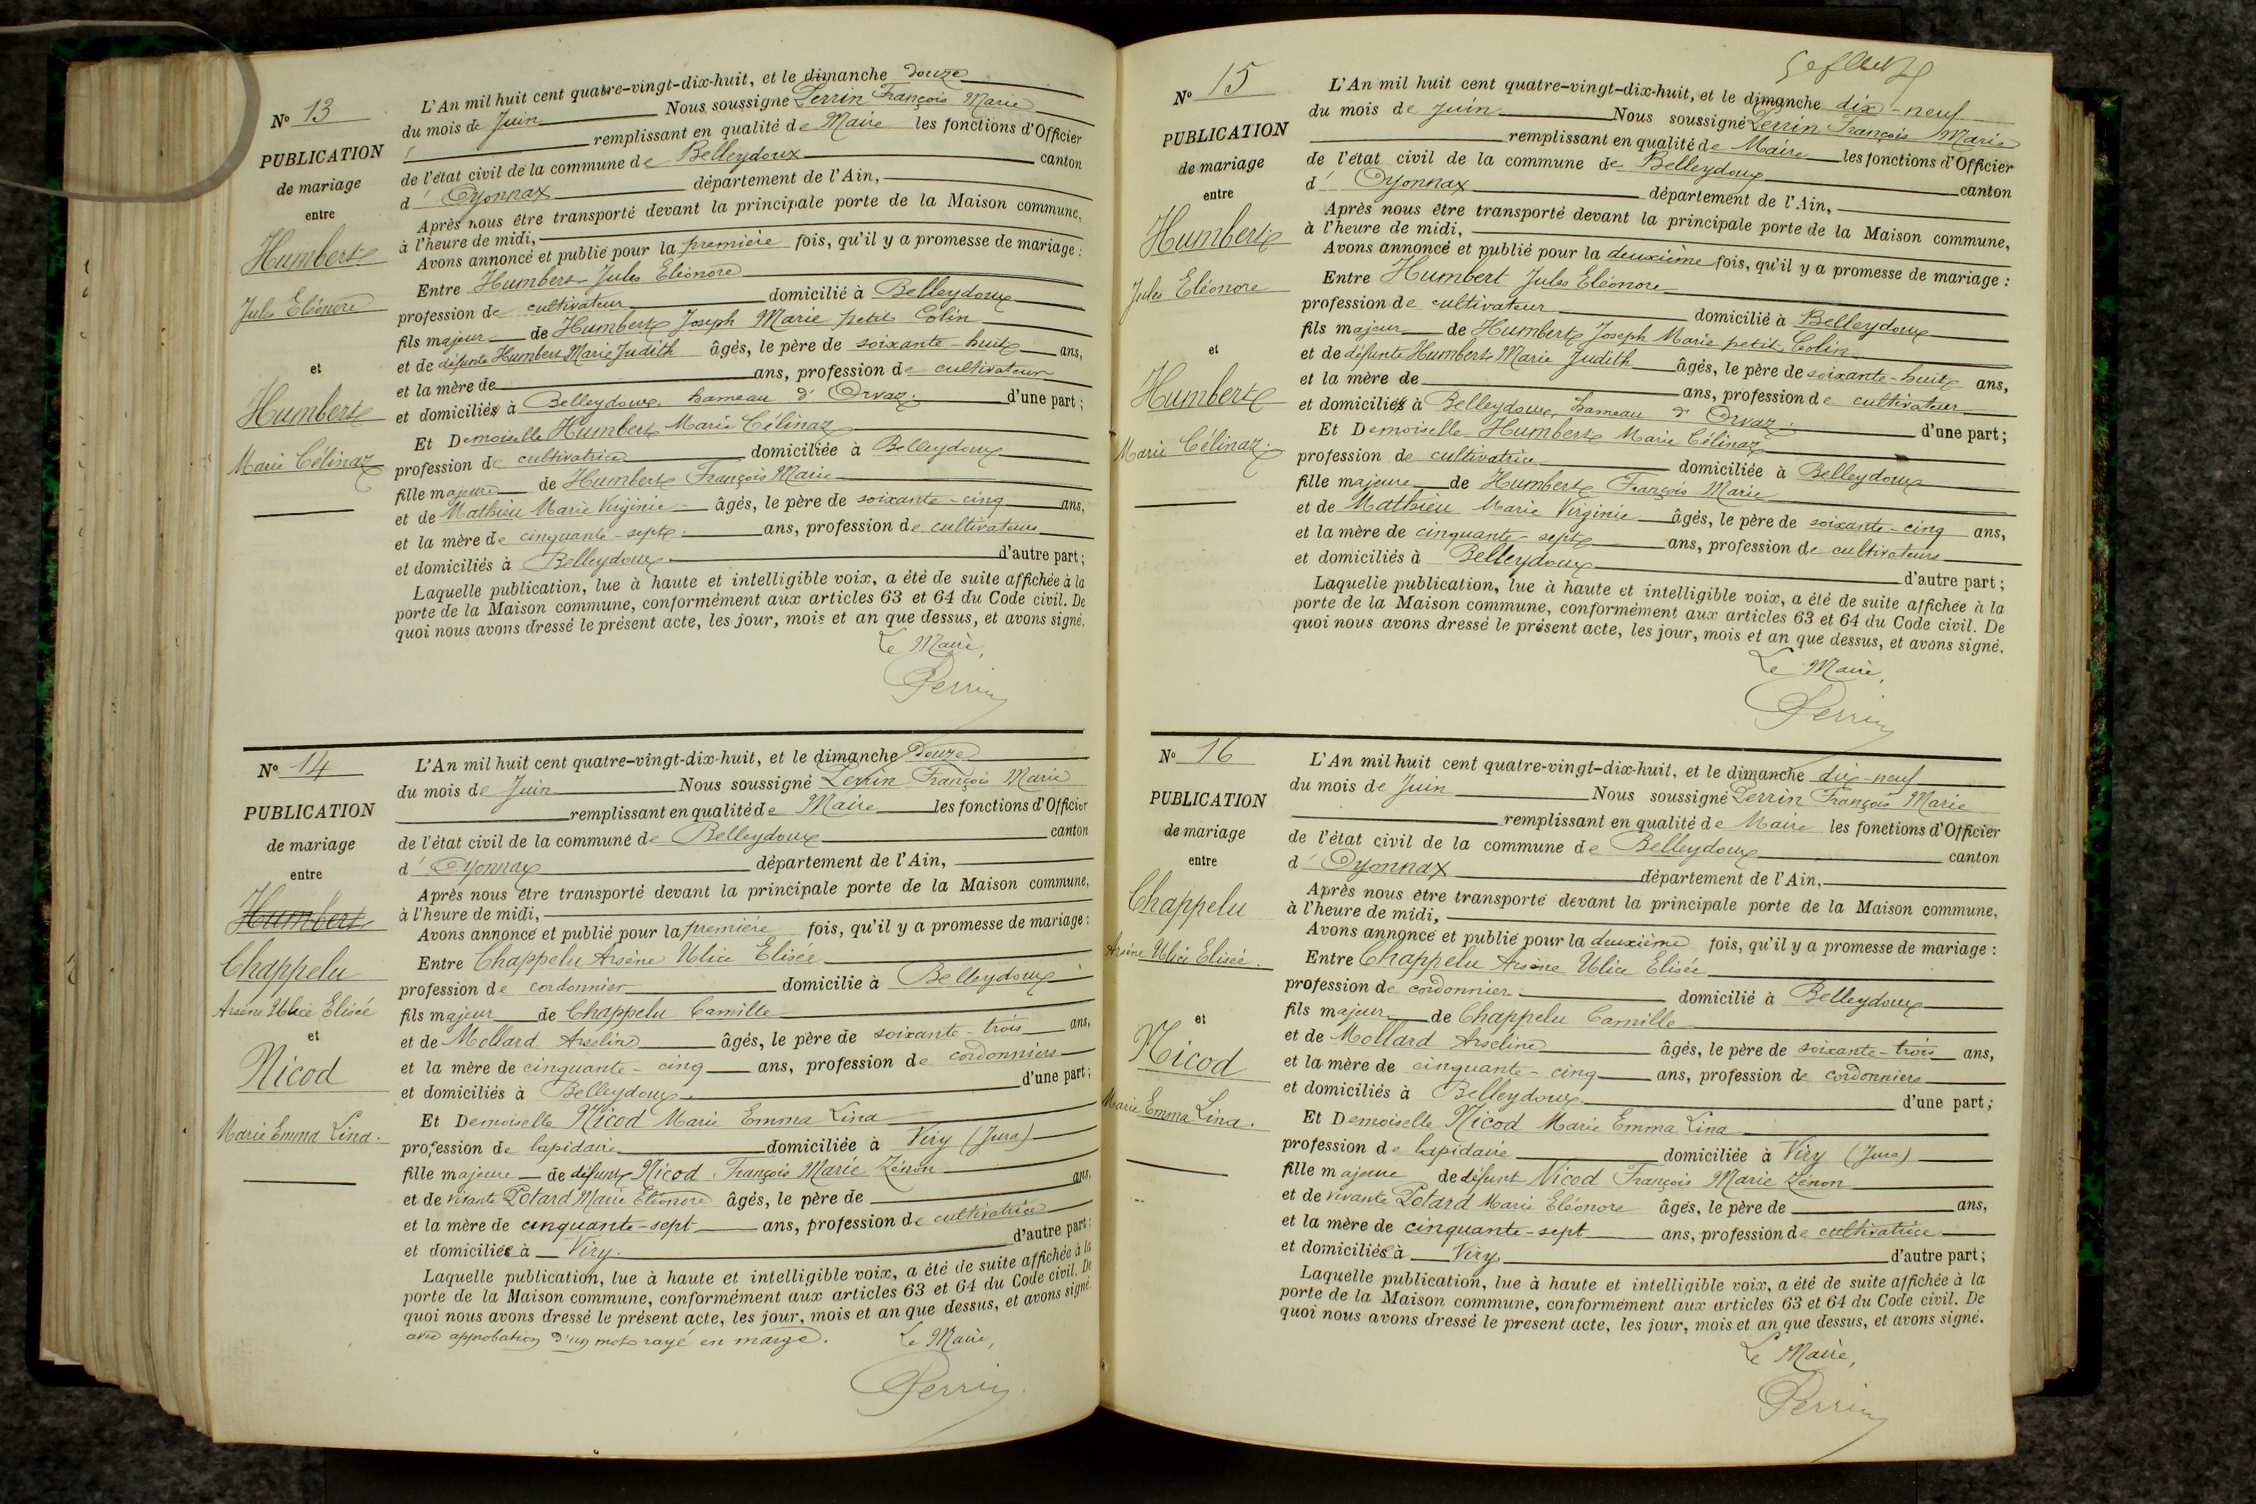 Nº 13
PUBLICATION
de mariage
entre
Humbert
Jules Eléonore
et
Humbert
Marie Célinaz
L'An mil huit cent quatre-vingt-dix-huit, et le dimanche douze
du mois de Juin Nous soussigné Perrin François Marie
remplissant en qualité de Maire les fonctions d'Officier
de l'état civil de la commune de Belleydoux canton
d' Oyonnax département de l'Ain,
Après nous être transporté devant la principale porte de la Maison commune,
à l'heure de midi,
Avons annoncé et publié pour la première fois, qu'il y a promesse de mariage :
Entre Humbert Jules Eléonore
profession de cultivateur domicilié à Belleydoux
fils majeur de Humbert Joseph Marie petit Colin
et de défunte Humbert Marie Judith âgés, le père de soixante-huit ans,
et la mère de ans, profession de cultivateur
et domiciliés à Belleydoux, hameau d'Orvaz. d'une part ;
Et Demoiselle Humbert Marie Célinaz
profession de cultivatrice domiciliée à Belleydoux
fille majeure de Humbert François Marie
et de Mathieu Marie Virginie âgés, le père de soixante-cinq ans,
et la mère de cinquante-sept ans, profession de cultivateurs
et domiciliés à Belleydoux d'autre part ;
Laquelle publication, lue à haute et intelligible voix, a été de suite affichée à la
porte de la Maison commune, conformément aux articles 63 et 64 du Code civil. De
quoi nous avons dressé le présent acte, les jour, mois et an que dessus, et avons signé.
Le Maire,
Perrin
Nº 14
PUBLICATION
de mariage
entre
Humbert
Chappelu
Arsène Ulice Elisée
et
Nicod
Marie Emma Lina.
L'An mil huit cent quatre-vingt-dix-huit, et le dimanche Douze
du mois de Juin Nous soussigné Perrin François Marie
remplissant en qualité de Maire les fonctions d'Officier
de l'état civil de la commune de Belleydoux canton
d' Oyonnax département de l'Ain,
Après nous être transporté devant la principale porte de la Maison commune,
à l'heure de midi,
Avons annoncé et publié pour la première fois, qu'il y a promesse de mariage :
Entre Chappelu Arsène Ulice Elisée
profession de cordonnier domicilié à Belleydoux
fils majeur de Chappelu Camille
et de Mollard Arseline âgés, le père de soixante-trois ans,
et la mère de cinquante-cinq ans, profession de cordonniers
et domiciliés à Belleydoux. d'une part ;
Et Demoiselle Nicod Marie Emma Lina
profession de lapidaire domiciliée à Viry (Jura)
fille majeure de défunt Nicod François Marie Zénon
et de vivante Potard Marie Eléonore âgés, le père de ans,
et la mère de cinquante-sept ans, profession de cultivatrice
et domiciliés à Viry. d'autre part ;
Laquelle publication, lue à haute et intelligible voix, a été de suite affichée à la
porte de la Maison commune, conformément aux articles 63 et 64 du Code civil. De
quoi nous avons dressé le présent acte, les jour, mois et an que dessus, et avons signé.
avec approbation d'un mot rayé en marge. Le Maire,
Perrin
Nº 15
PUBLICATION
de mariage
entre
Humbert
Jules Eléonore
et
Humbert
Marie Célinaz.
L'An mil huit cent quatre-vingt-dix-huit, et le dimanche dix-neuf
du mois de Juin Nous soussigné Perrin François Marie
remplissant en qualité de Maire les fonctions d'Officier
de l'état civil de la commune de Belleydoux canton
d' Oyonnax département de l'Ain,
Après nous être transporté devant la principale porte de la Maison commune,
à l'heure de midi,
Avons annoncé et publié pour la deuxième fois, qu'il y a promesse de mariage :
Entre Humbert Jules Eléonore
profession de cultivateur domicilié à Belleydoux
fils majeur de Humbert Joseph Marie petit Colin
et de défunte Humbert Marie Judith âgés, le père de soixante-huit ans,
et la mère de ans, profession de cultivateur
et domiciliés à Belleydoux, hameau d'Orvaz. d'une part ;
Et Demoiselle Humbert Marie Célinaz
profession de cultivatrice domiciliée à Belleydoux
fille majeure de Humbert François Marie
et de Mathieu Marie Virginie âgés, le père de soixante-cinq ans,
et la mère de cinquante-sept ans, profession de cultivateurs
et domiciliés à Belleydoux d'autre part ;
Laquelle publication, lue à haute et intelligible voix, a été de suite affichée à la
porte de la Maison commune, conformément aux articles 63 et 64 du Code civil. De
quoi nous avons dressé le présent acte, les jour, mois et an que dessus, et avons signé.
Le Maire,
Perrin
Nº 16
PUBLICATION
de mariage
entre
Chappelu
Arsène Ulice Elisée.
et
Nicod
Marie Emma Lina.
L'An mil huit cent quatre-vingt-dix-huit, et le dimanche dix-neuf
du mois de Juin Nous soussigné Perrin François Marie
remplissant en qualité de Maire les fonctions d'Officier
de l'état civil de la commune de Belleydoux canton
d' Oyonnax département de l'Ain,
Après nous être transporté devant la principale porte de la Maison commune,
à l'heure de midi,
Avons annoncé et publié pour la deuxième fois, qu'il y a promesse de mariage :
Entre Chappelu Arsène Ulice Elisée
profession de cordonnier domicilié à Belleydoux
fils majeur de Chappelu Camille
et de Mollard Arseline âgés, le père de soixante-trois ans,
et la mère de cinquante-cinq ans, profession de cordonniers
et domiciliés à Belleydoux. d'une part ;
Et Demoiselle Nicod Marie Emma Lina
profession de lapidaire domiciliée à Viry (Jura)
fille majeure de défunt Nicod François Marie Zénon
et de vivante Potard Marie Eléonore âgés, le père de ans,
et la mère de cinquante-sept ans, profession de cultivatrice
et domiciliés à Viry. d'autre part ;
Laquelle publication, lue à haute et intelligible voix, a été de suite affichée à la
porte de la Maison commune, conformément aux articles 63 et 64 du Code civil. De
quoi nous avons dressé le présent acte, les jour, mois et an que dessus, et avons signé.
Le Maire,
Perrin